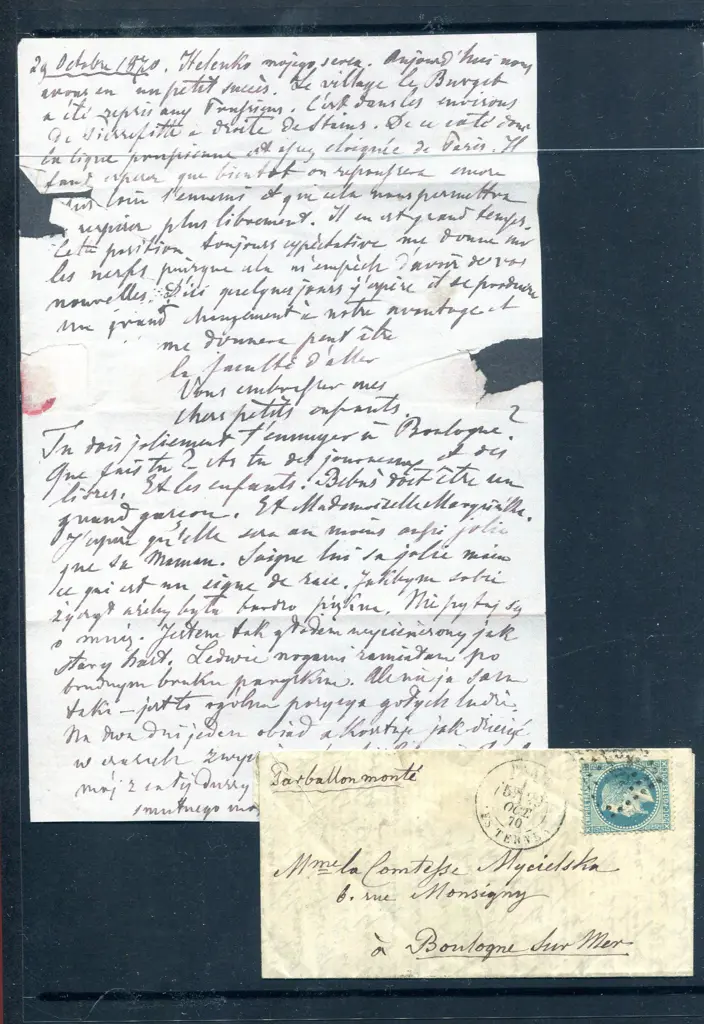 29 Octobre 1870. Helenko mojego serca. Aujourd'hui nous
avons eu un petit succès. Le village le Burget
a été repris aux Prussiens. C'est dans les environs
de Pierrefitte à droite de Stains. De ce côté donc
la ligne prussienne est assez éloignée de Paris. Il
faut espérer que bientôt on repoussera encore
plus loin l'ennemi et que cela nous permettra
respirer plus librement. Il en est grand temps.
Cette position toujours expectative me donne sur
les nerfs puisque cela m'empêche d'avoir de vos
nouvelles. D'ici quelques jours j'espère il se produira
un grand changement à notre avantage et
me donnera peut être
la faculté d'aller
Vous embrasser mes
chers petits enfants.
Tu dois joliement t'ennuyer à Boulogne?
Que fais tu? As tu des journeaux et des
livres. Et les enfants. Bébus doit être un
grand garçon. Et Mademoiselle
J'espère qu'elle sera au moins aussi jolie
que sa Maman. Soigne lui sa jolie main
ce qui est un signe de race. Jakbym sobie
życzył ażeby była bardzo piękna. Nie pytaj się
o mnie. Jestem tak głodem wycieńczony jak
stary hart. Ledwie nogami zamiatam po
brudnym bruku paryskim. Ale nie ja sam
taki – jest to ogólna pozycya gołych ludzi.
Na dwa dni jeden obiad a kosztuje jak dziesięć
w czasach
mój z całej duszy
smutnego
Par ballon monté
OCT.
70
LES TERNES
Mme la Comtesse Mycielska
6. rue Monsigny
à Boulogne sur Mer